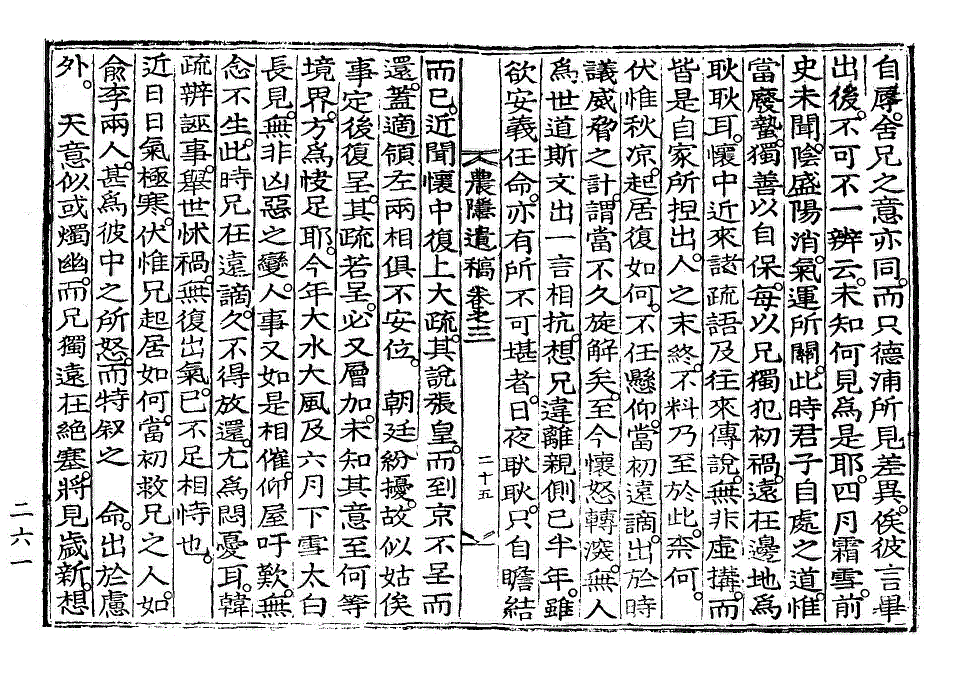 自辱。舍兄之意亦同。而只德浦所見差異。俟彼言畢
出後。不可不一辨云。未知何見爲是耶。四月霜雪。前
史未聞。陰盛陽消。氣運所關。此時君子自處之道。惟
當廢蟄。獨善以自保。每以兄獨犯初禍。遠在邊地爲
耿耿耳。懷中近來諸疏語及往來傳說。無非虛搆。而
皆是自家所捏出。人之末終。不料乃至於此。柰何。
伏惟秋凉。起居復如何。不任懸仰。當初遠謫。出於時
議威脅之計。謂當不久旋解矣。至今懷怒轉深。無人
爲世道斯文出一言相抗。想兄違離親側已半年。雖
欲安義任命。亦有所不可堪者。日夜耿耿。只自瞻結
農隱遺稿 卷之三
二十五
而已。近聞懷中復上大疏。其說張皇。而到京不呈而
還。蓋適領左兩相俱不安位。朝廷紛擾。故似姑俟
事定後復呈。其疏若呈。必又層加。未知其意至何等
境界。方爲恔足耶。今年大水大風及六月下雪太白
長見。無非凶惡之變。人事又如是相催。仰屋吁歎。無
念不生。此時兄在遠謫。久不得放還。尤爲悶憂耳。韓
疏辨誣事。擧世怵禍。無復出氣。已不足相恃也。
近日日氣極寒。伏惟兄起居如何。當初救兄之人。如
兪李兩人。甚爲彼中之所怒。而特叙之 命。出於慮
外。 天意似或燭幽。而兄獨遠在絶塞。將見歲新。想
二六一